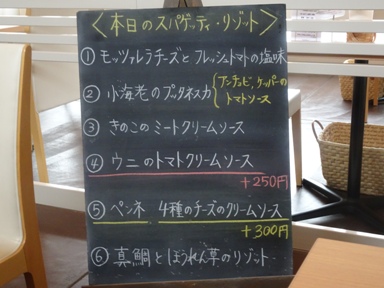 〈本日のスパゲッティ・リゾット〉
① モッツァレラチーズとフレッシュトマトの塩味
② 小海老のプッタネスカ
アンチョビ、ケッパーの
トマトソース
③ きのこのミートクリームソース
④ ウニのトマトクリームソース
+250円
⑤ ペンネ 4種のチーズのクリームソース
+300円
⑥ 真鯛とほうれん草のリゾット